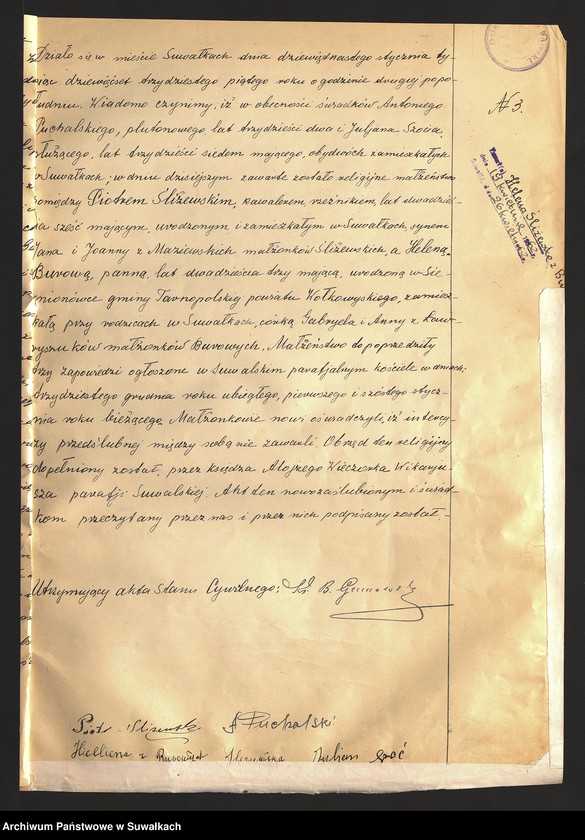 Działo się w mieście Suwałkach dnia dziewiętnastego stycznia ty-
siąc dziewięćset trzydziestego piątego roku o godzinie drugiej popo-
łudniu. Wiadomo czynimy, iż w obecności świadków Antoniego
Puchalskiego, plutonowego, lat trzydzieści dwa i Juljana
służącego, lat trzydzieści siedem mającego, obydwóch zamieszkałych
w Suwałkach; w dniu dzisiejszym zawarte zostało religijne małżeństwo
pomiędzy Piotrem Śliżewskim, kawalerem, rzeźnikiem, lat dwadzieś-
cia sześć mającym, urodzonym i zamieszkałym w Suwałkach, synem
Jana i Joanny z Maziewskich małżonków Śliżewskich, a Heleną
Burową, panną, lat dwadzieścia trzy mającą, urodzoną w Sie-
mionówce gminy Tarnopolskiej powiatu Wołkowyskiego, zamiesz-
kałą przy rodzicach w Suwałkach, córką Gabryela i Anny z Ław-
ryszuków małżonków Burowych. Małżeństwo to poprzedziły
trzy zapowiedzi ogłoszone w Suwalskim parafjalnym kościele w dniach:
trzydziestego grudnia roku ubiegłego, pierwszego i szóstego stycz-
nia roku bieżącego. Małżonkowie nowi oświadczyli, iż intercy-
zy przedślubnej między sobą nie zawarli. Obrzęd ten religijny
dopełniony został przez księdza Alojzego Wieczorka Wikaryu-
sza parafji Suwalskiej. Akt ten nowozaślubionym i świad-
kom przeczytany przez nas i przez nich podpisany został.-
Utrzymujący akta Stanu Cywilnego: B.
Piotr Śliżewski A Puchalski
z Julian
№ 3.
Helena Śliżewska z
19 kwietnia
26 kwietnia
Archiwum Państwowe w Suwałkach